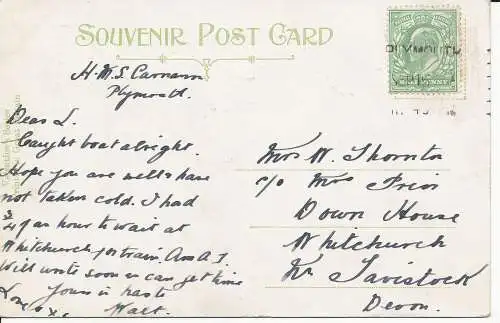 SOUVENIR POST CARD
H.M.S. Carnarvon
Plymouth.
Dear L.
Caught boat alright.
Hope you are well & have
not taken cold. I had
3/4 of an hour to wait at
Whitchurch for train. Am A.1.
Will write soon as can get time
Yours in haste
Love x x. Walt.
PLYMOUTH
Mrs W. Thornton
c/o Mrs Prior
Down House
Whitchurch
Nr Tavistock
Devon.